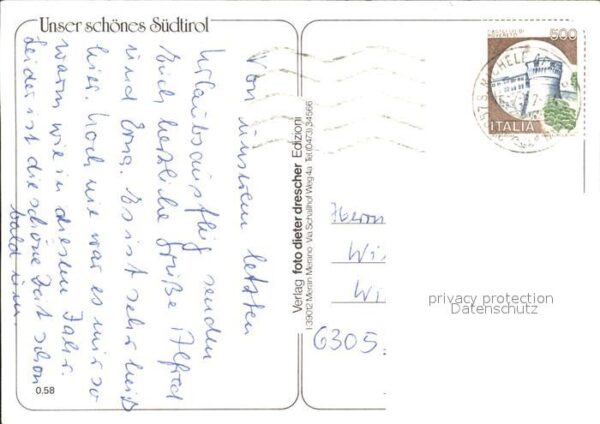 Unser schönes Südtirol
Von unserem letzten
Urlaubsausflug senden
Euch herzliche Grüße Alfred
und Erna. Es ist sehr heiß
hier. Noch nie war es mir so
warm wie in diesem Jahr.
Leider ist die schöne Zeit schon
bald um.
0.58
Verlag foto dieter drescher Edizioni
I-39012 Meran Merano Via Schallhof Weg 4a Tel. (0473) 34566
500
ITALIA
Herrn
Wi
Wi
6305
privacy protection
Datenschutz